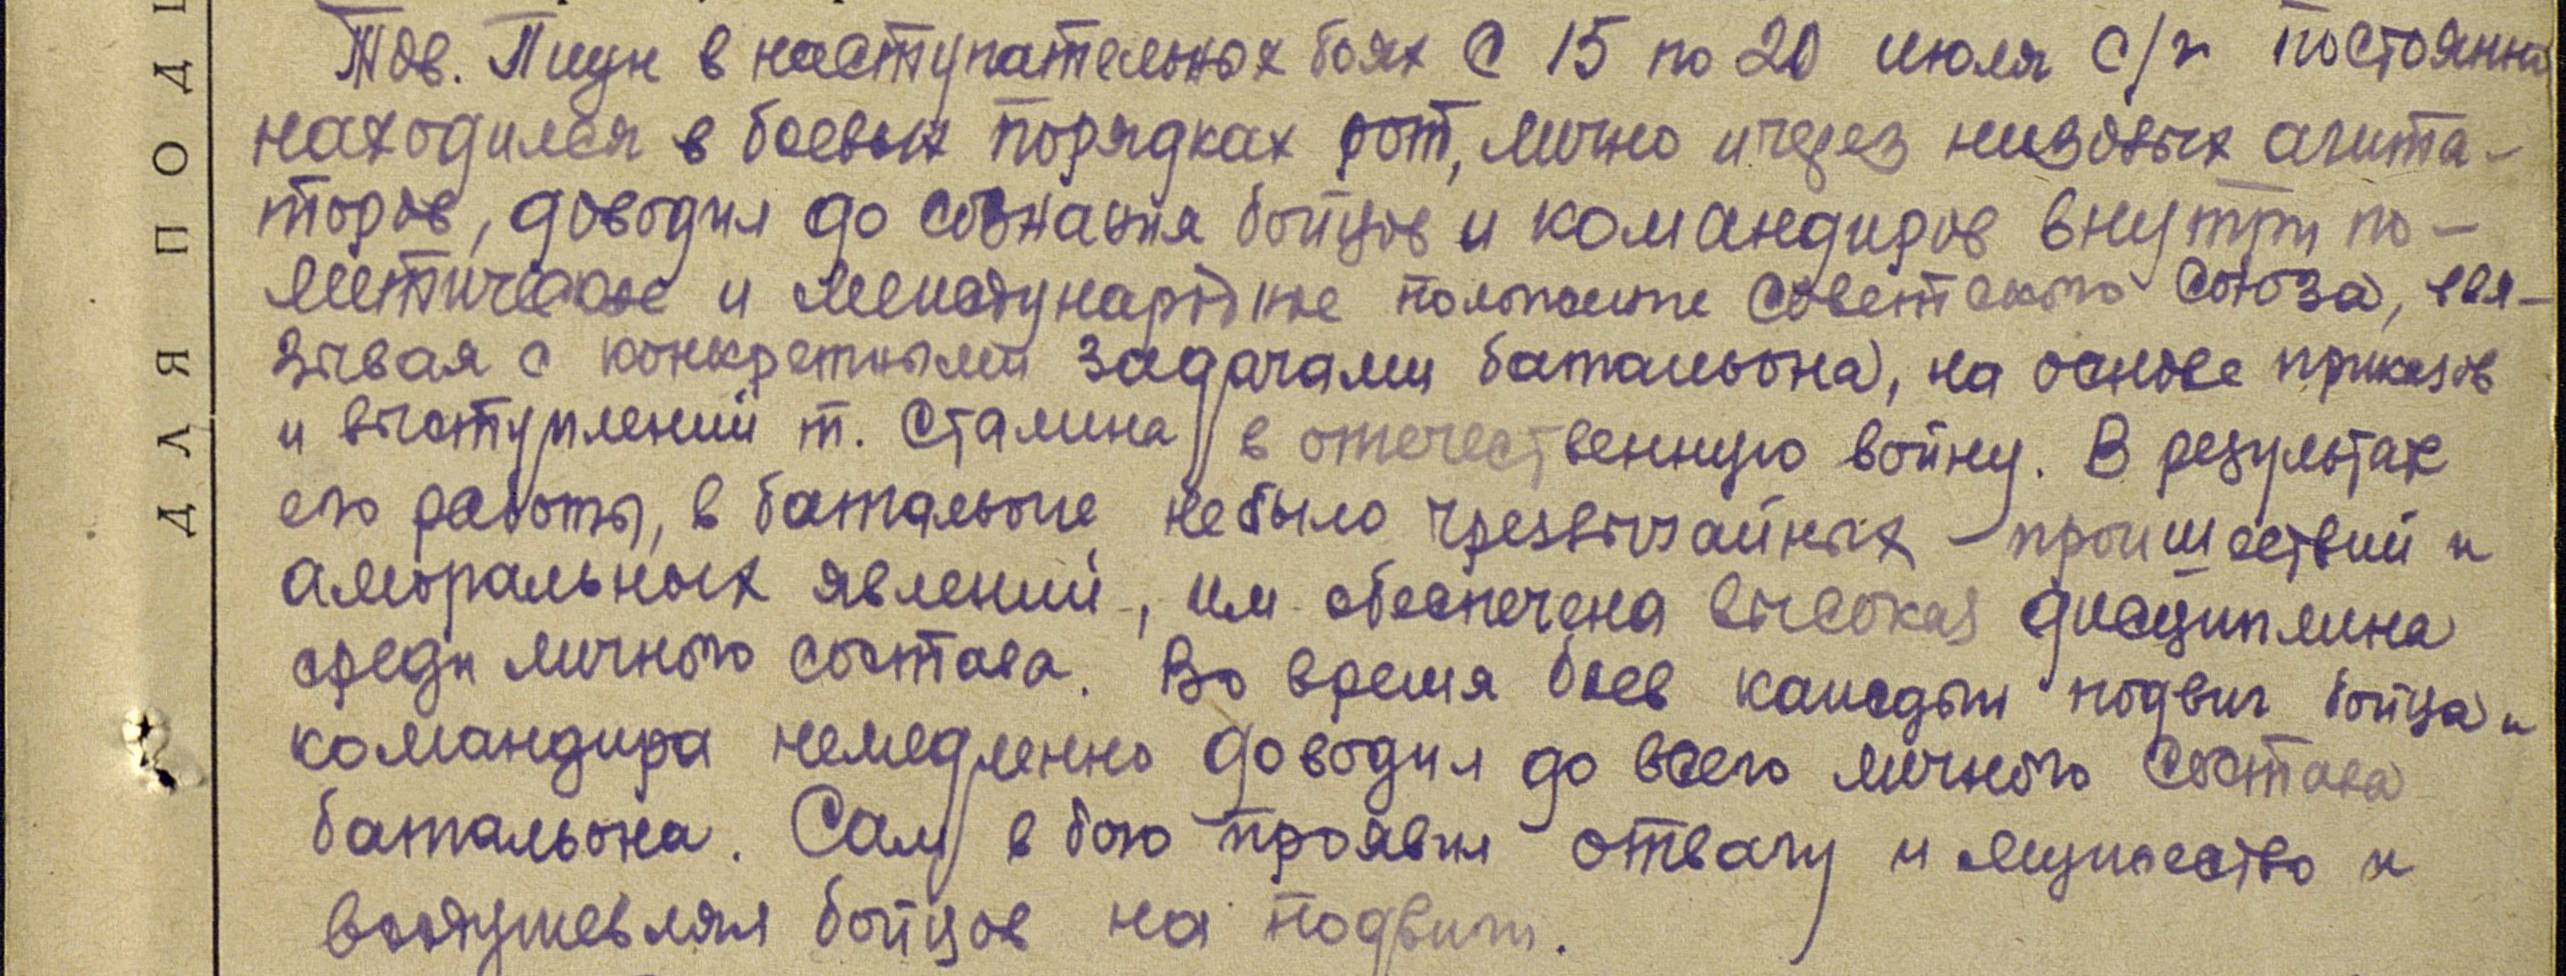 Тов. Пицун в наступательных боях с 15 по 20 июля с/г постоянно
находился в боевых порядках рот, лично и через низовых агита-
торов, доводил до сознания бойцов и командиров внутри по-
литическое и международное положение Советского Союза, свя-
зывая с конкретными задачами батальона, на основе приказов
и выступлений т. Сталина в отечественную войну. В результате
его работы, в батальоне не было чрезвычайных проишествий и
аморальных явлений, им обеспечена высокая дисциплина
среди личного состава. Во время боев каждый подвиг бойца и
командира немедленно доводил до всего личного состава
батальона. Сам в бою проявил отвагу и мужество и
воодушевлял бойцов на подвиги.
ДЛЯ ПОД